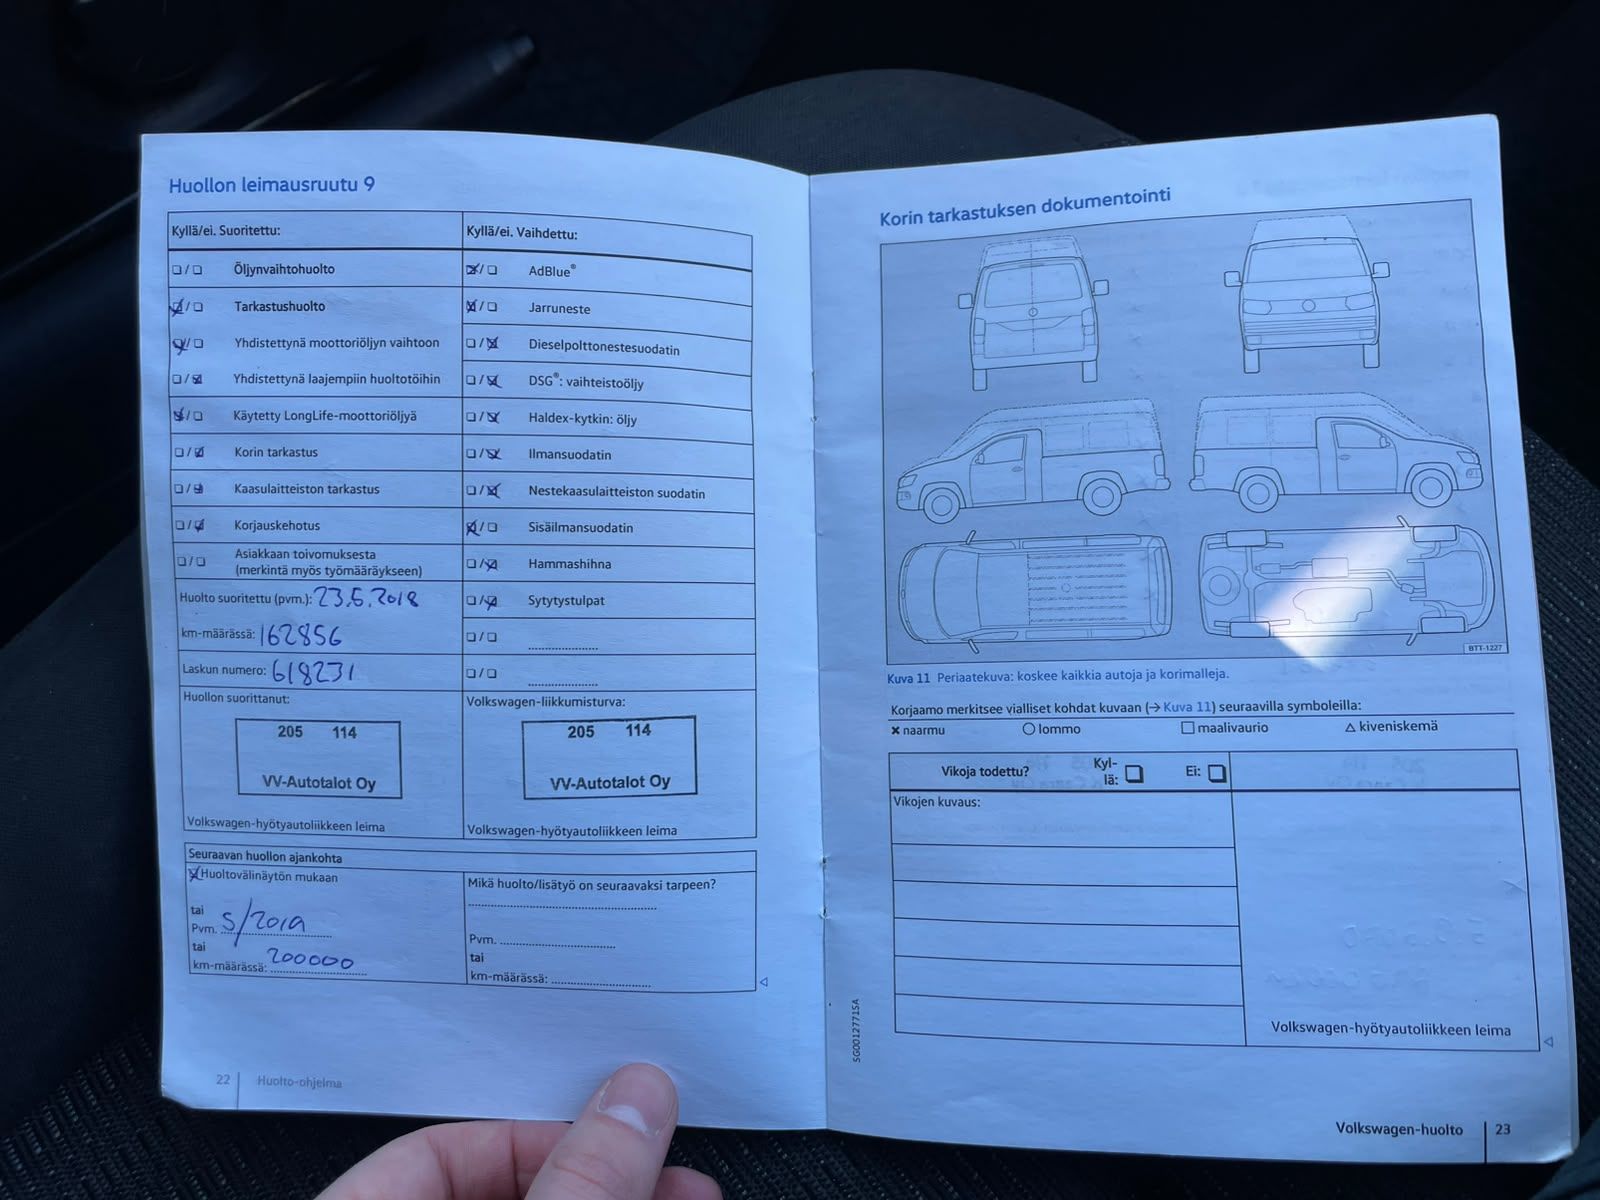 Huollon leimausruutu 9
Kyllä/ei. Suoritettu:
Öljynvaihtohuolto
Tarkastushuolto
Yhdistettynä moottoriöljyn vaihtoon
Yhdistettynä laajempiin huoltotöihin
Käytetty LongLife-moottoriöljyä
Korin tarkastus
Kaasulaitteiston tarkastus
Korjauskehotus
Asiakkaan toivomuksesta
(merkintä myös työmääräykseen)
Huolto suoritettu (pvm.): 23.5.2018
km-määrässä: 162856
Laskun numero: 618231
Huollon suorittanut:
205 114
VV-Autotalot Oy
Volkswagen-hyötyautoliikkeen leima
Kyllä/ei. Vaihdettu:
AdBlue®
Jarruneste
Dieselpolttonestesuodatin
DSG®: vaihteistoöljy
Haldex-kytkin: öljy
Ilmansuodatin
Nestekaasulaitteiston suodatin
Sisäilmansuodatin
Hammashihna
Sytytystulpat
Volkswagen-liikkumisturva:
205 114
VV-Autotalot Oy
Volkswagen-hyötyautoliikkeen leima
Seuraavan huollon ajankohta
Huoltovälinäytön mukaan
tai
Pvm. 5/2019
tai
km-määrässä: 200000
Mikä huolto/lisätyö on seuraavaksi tarpeen?
Pvm.
tai
km-määrässä:
22 Huolto-ohjelma
Korin tarkastuksen dokumentointi
BTT-1227
Kuva 11 Periaatekuva: koskee kaikkia autoja ja korimalleja.
Korjaamo merkitsee vialliset kohdat kuvaan (→ Kuva 11) seuraavilla symboleilla:
× naarmu ○ lommo □ maalivaurio △ kiveniskemä
Vikoja todettu? Kyl-
lä: Ei:
Vikojen kuvaus:
Volkswagen-hyötyautoliikkeen leima
SG0012771SA
Volkswagen-huolto 23